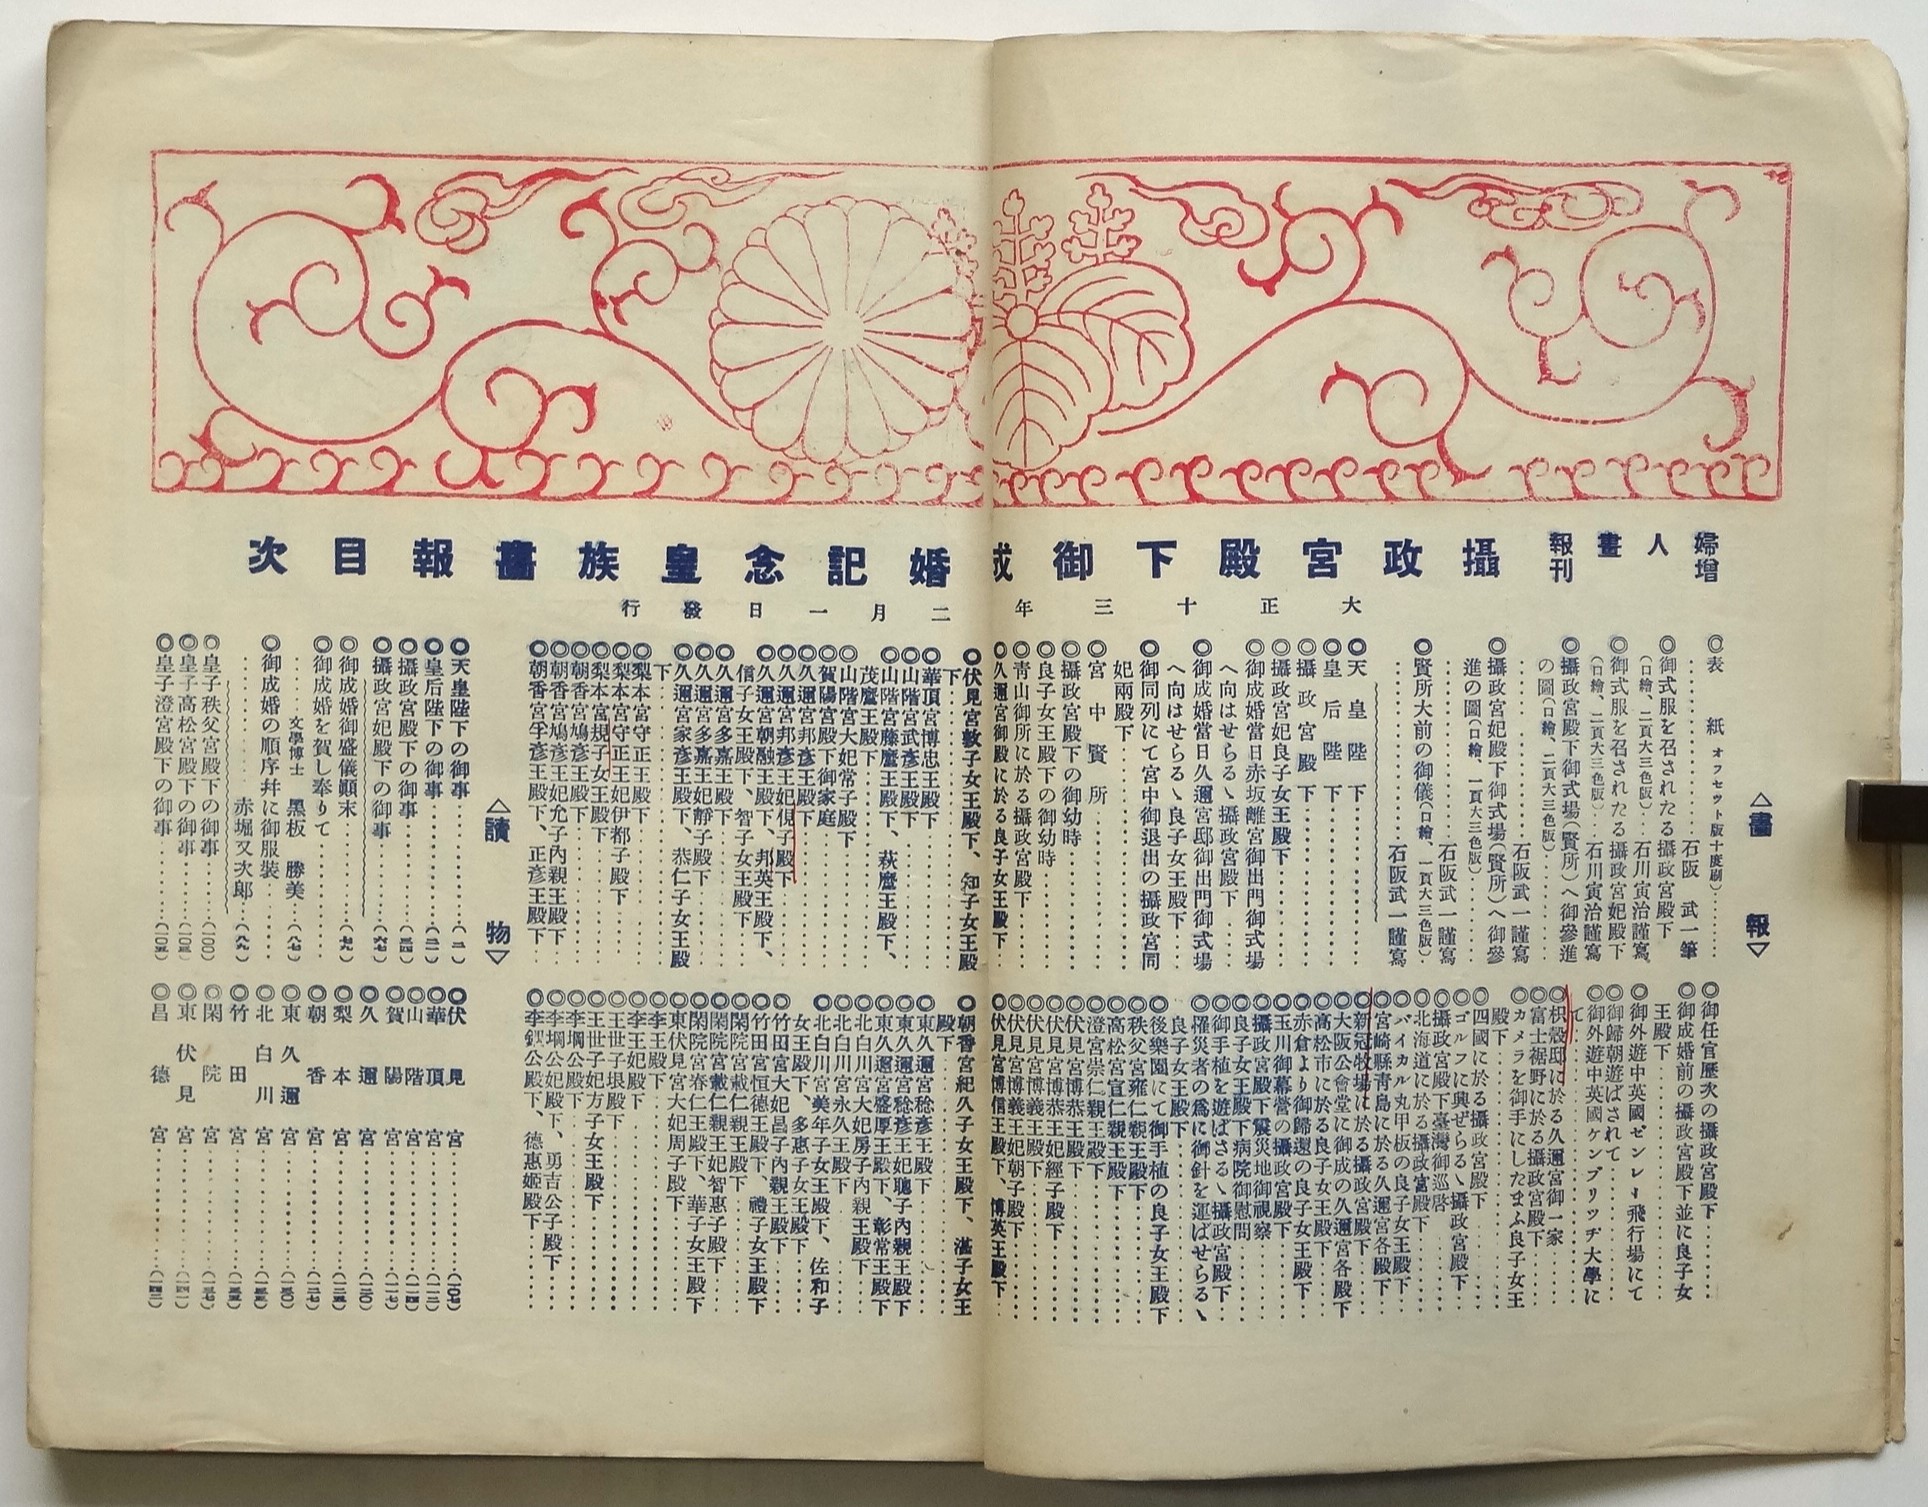 婦人畫報
增刊
攝政宮殿下御成婚記念皇族畫報目次
大正十三年二月一日發行
△畫報▽
◎表紙オフセット版十度刷)……
……石阪武一筆
◎御式服を召されたる攝政宮殿下
(口繪、二頁大三色版)…石川寅治謹寫
◎御式服を召されたる攝政宮妃殿下
(口繪、二頁大三色版)…石川寅治謹寫
◎攝政宮殿下御式場(賢所)へ御參進
の圖(口繪、二頁大三色版)……
……石阪武一謹寫
◎攝政宮妃殿下御式場(賢所)へ御參
進の圖(口繪、一頁大三色版)……
……石阪武一謹寫
◎賢所大前の御儀(口繪、一頁大三色版)…
……石阪武一謹寫
◎天皇陛下……
◎皇后陛下……
◎攝政宮殿下……
◎攝政宮妃良子女王殿下……
◎御成婚當日赤坂離宮御出門御式場
へ向はせらるゝ攝政宮殿下……
◎御成婚當日久邇宮邸御出門御式場
へ向はせらるゝ良子女王殿下……
◎御同列にて宮中御退出の攝政宮同
妃兩殿下……
◎宮中賢所……
◎攝政宮殿下の御幼時……
◎良子女王殿下の御幼時……
◎青山御所に於る攝政宮殿下……
◎久邇宮御殿に於る良子女王殿下
◎御任官歷次の攝政宮殿下……
◎御成婚前の攝政宮殿下並に良子女
王殿下……
◎御外遊中英國ゼンレー飛行場にて
◎御歸朝遊ばされて……
◎御外遊中英國ケンブリッヂ大學に
て……
◎枳殼邸に於る久邇宮御一家
◎富士裾野に於る攝政宮殿下……
◎カメラを御手にしたまふ良子女王
殿下……
◎四國に於る攝政宮殿下……
◎ゴルフに興ぜらるゝ攝政宮殿下
◎攝政宮殿下臺灣御巡啓……
◎北海道に於る攝政宮殿下……
◎バイカル丸甲板の良子女王殿下
◎宮崎縣青島に於る久邇宮各殿下
◎新冠牧場に於る攝政宮殿下……
◎大阪公會堂に御成の久邇宮各殿下
◎高松市に於る良子女王殿下……
◎赤倉より御歸還の良子女王殿下
◎玉川御幕營の攝政宮殿下……
◎攝政宮殿下震災地御視察……
◎良子女王殿下病院御慰問……
◎御手植を遊ばさるゝ攝政宮殿下
◎罹災者の爲に御針を運ばせらるゝ
良子女王殿下……
◎後樂園にて御手植の良子女王殿下
◎秩父宮雍仁親王殿下……
◎高松宮宣仁親王殿下……
◎澄宮崇仁親王殿下……
◎伏見宮博恭王殿下……
◎伏見宮博恭王妃經子殿下……
◎伏見宮博義王殿下……
◎伏見宮博義王妃朝子殿下……
◎伏見宮博信王殿下、博英王殿下
◎伏見宮敦子女王殿下、知子女王殿
下……
◎華頂宮博忠王殿下……
◎山階宮武彥王殿下……
◎山階宮藤麿王殿下、萩麿王殿下、
茂麿王殿下……
◎山階宮大妃常子殿下……
◎賀陽宮殿下御家庭……
◎久邇宮邦彥王殿下……
◎久邇宮邦彥王妃俔子殿下……
◎久邇宮朝融王殿下、邦英王殿下、
信子女王殿下、智子女王殿下……
◎久邇宮多嘉王殿下……
◎久邇宮多嘉王妃靜子殿下……
◎久邇宮家彥王殿下、恭仁子女王殿
下……
◎梨本宮守正王殿下……
◎梨本宮守正王妃伊都子殿下……
◎梨本宮規子女王殿下……
◎朝香宮鳩彥王殿下……
◎朝香宮鳩彥王妃允子內親王殿下
◎朝香宮孚彥王殿下、正彥王殿下
◎朝香宮紀久子女王殿下、湛子女王
殿下……
◎東久邇宮稔彥王殿下……
◎東久邇宮稔彥王妃聰子內親王殿下
◎東久邇宮盛厚王殿下、彰常王殿下
◎北白川宮大妃房子內親王殿下……
◎北白川宮永久王殿下……
◎北白川宮美年子女王殿下、佐和子
女王殿下、多惠子女王殿下……
◎竹田宮大妃昌子內親王殿下……
◎竹田宮恒德王殿下、禮子女王殿下
◎閑院宮載仁親王殿下……
◎閑院宮載仁親王妃智惠子殿下……
◎閑院宮春仁王殿下、華子女王殿下
◎東伏見宮大妃周子殿下……
◎李王殿下……
◎李王妃殿下……
◎王世子垠殿下……
◎王世子妃方子女王殿下……
◎李堈公殿下……
◎李堈公妃殿下、勇吉公子殿下……
◎李鍝公殿下、德惠姬殿下……
△讀物▽
◎天皇陛下の御事……(一)
◎皇后陛下の御事……
◎攝政宮殿下の御事……
◎攝政宮妃殿下の御事……(六七)
◎御成婚御盛儀顚末……(七九)
◎御成婚を賀し奉りて……
……文學博士 黑板勝美…(八七)
◎御成婚の順序幷に御服裝……
……赤堀又次郎…(八九)
◎皇子秩父宮殿下の御事……(一〇〇)
◎皇子高松宮殿下の御事……(一〇三)
◎皇子澄宮殿下の御事……(一〇五)
◎伏見宮……(一〇七)
◎華頂宮……(一一二)
◎山階宮……(一一四)
◎賀陽宮……(一一七)
◎久邇宮……(一二〇)
◎梨本宮……(一二五)
◎朝香宮……(一二七)
◎東久邇宮……(一三〇)
◎北白川宮……
◎竹田宮……(一三五)
◎閑院宮……(一三七)
◎東伏見宮……(一四一)
◎昌德宮……(一四三)